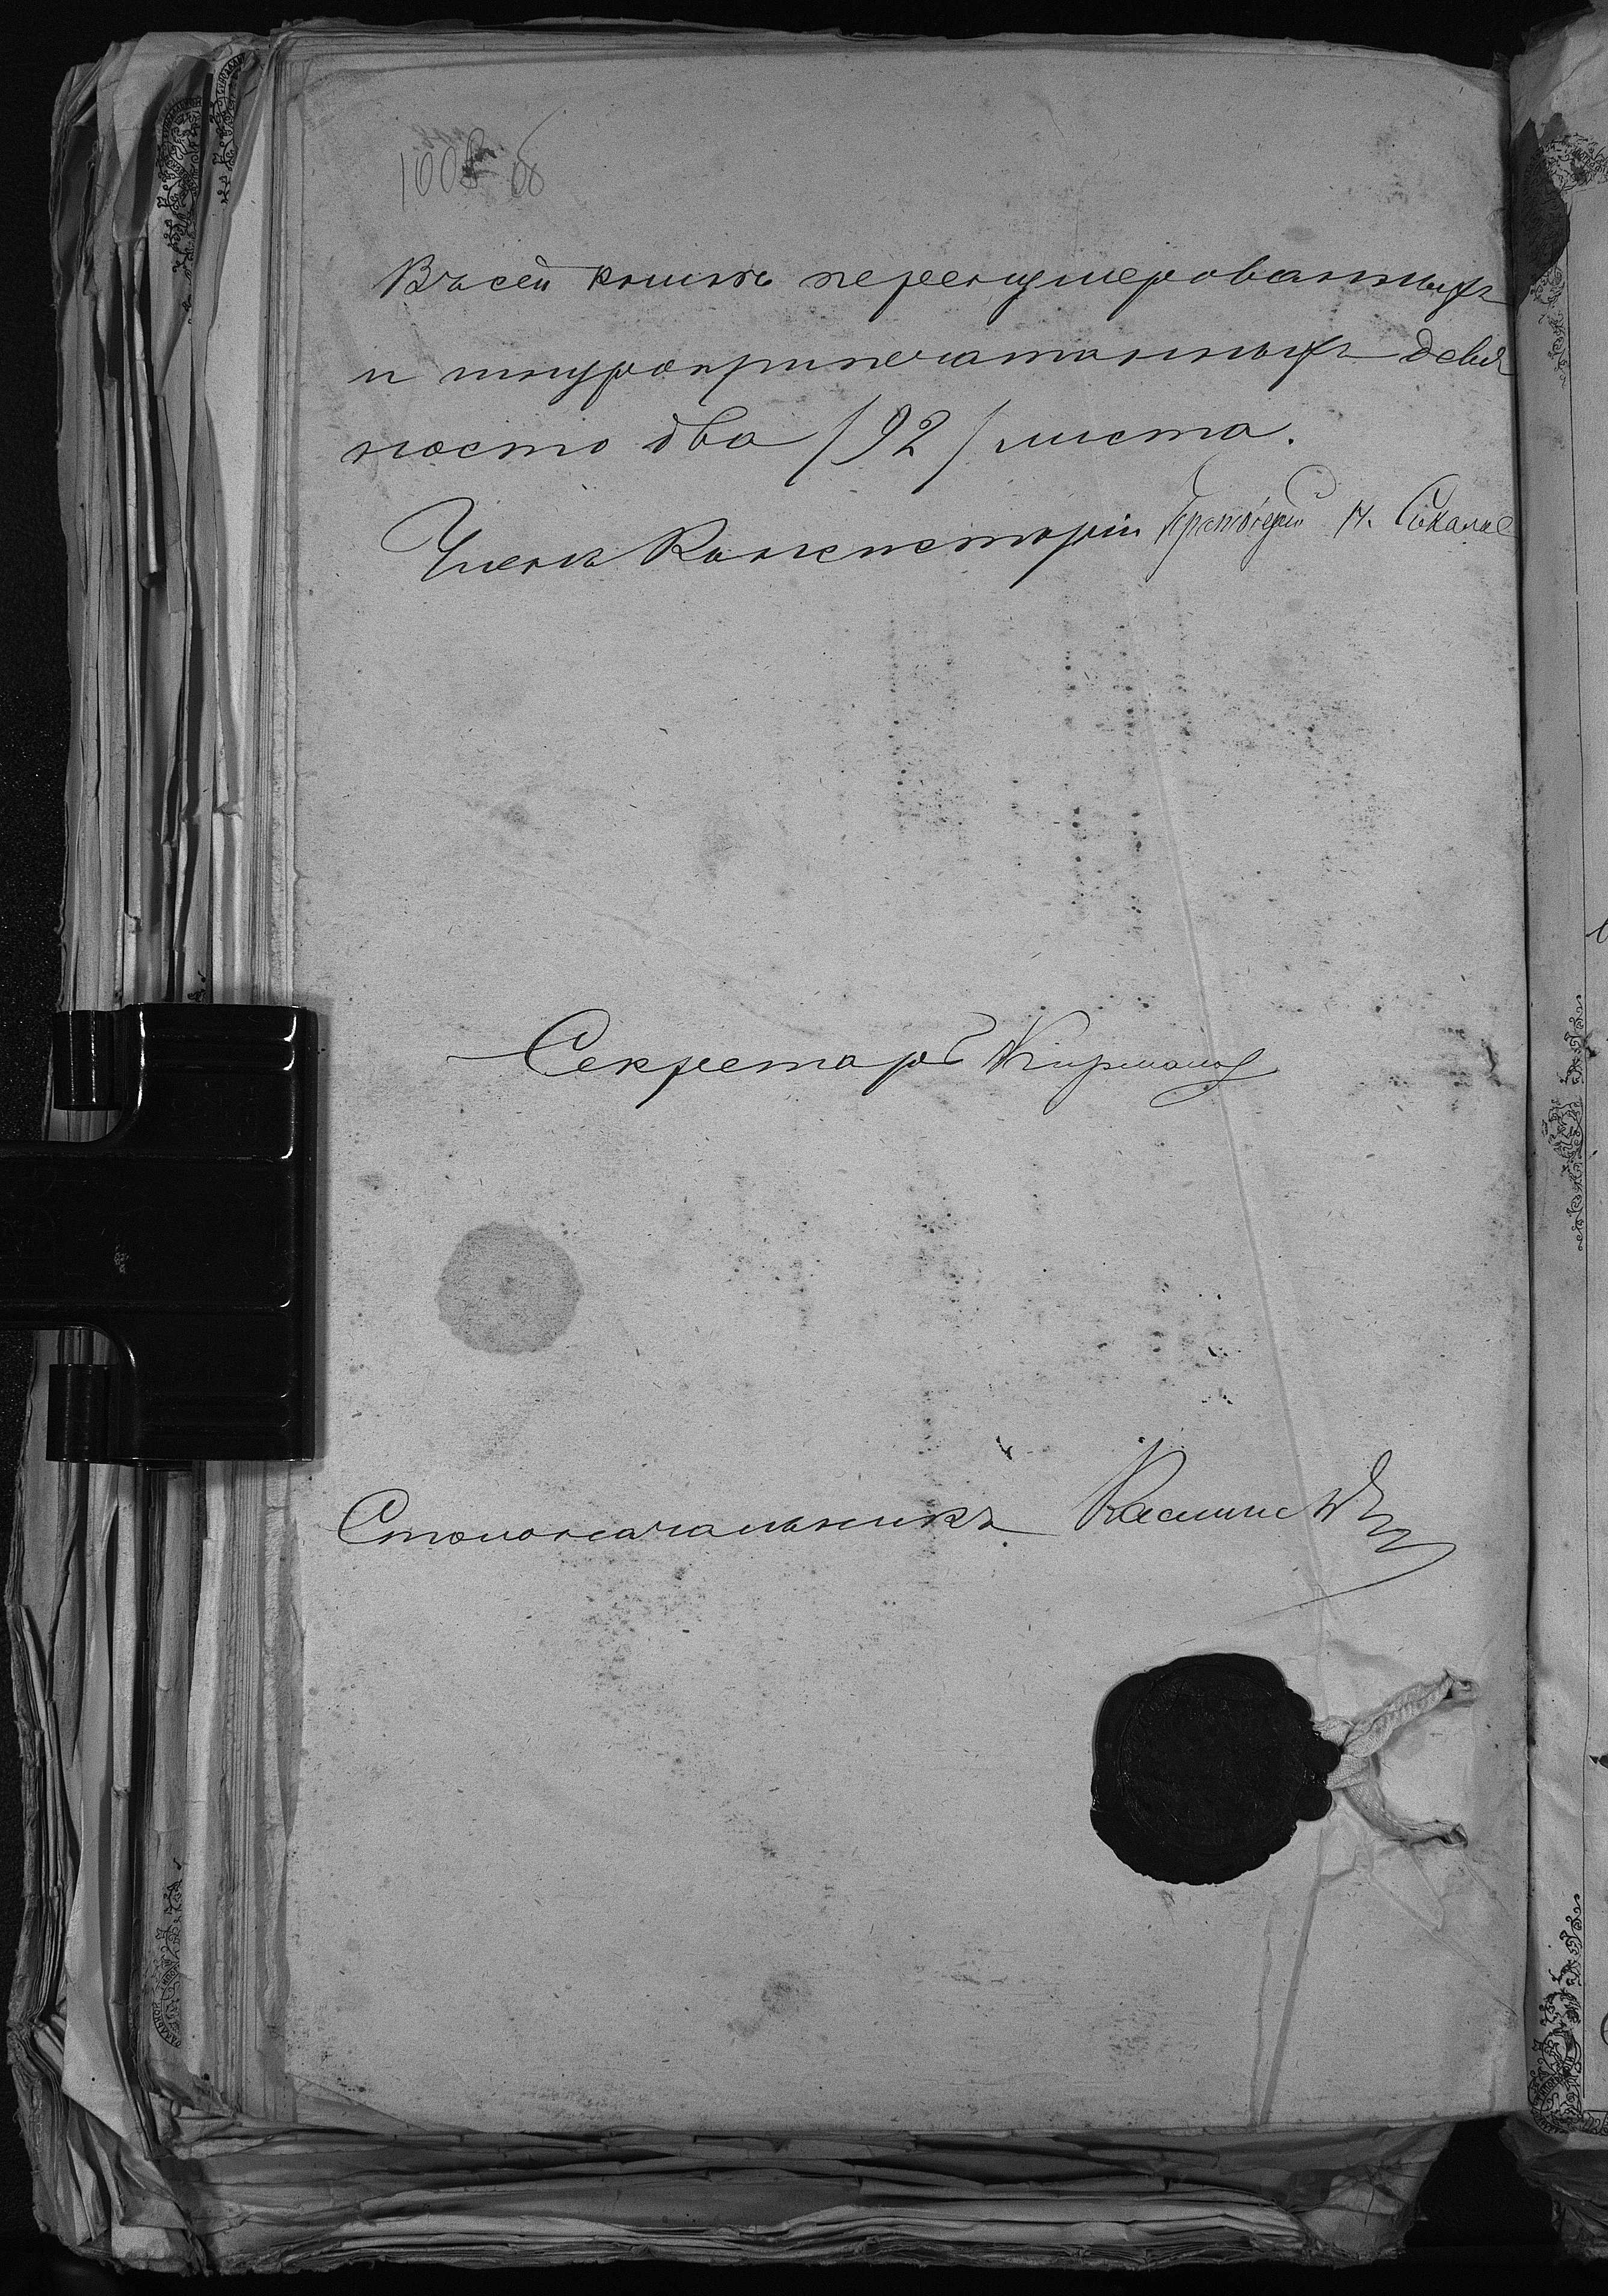 1008 об
Въ сей книгѣ перенумерованныхъ
и шнуроприпечатанныхъ девя
носто два /92/ листа.
Членъ Консисторіи Протоіерей
Секретарь
Столоначальникъ